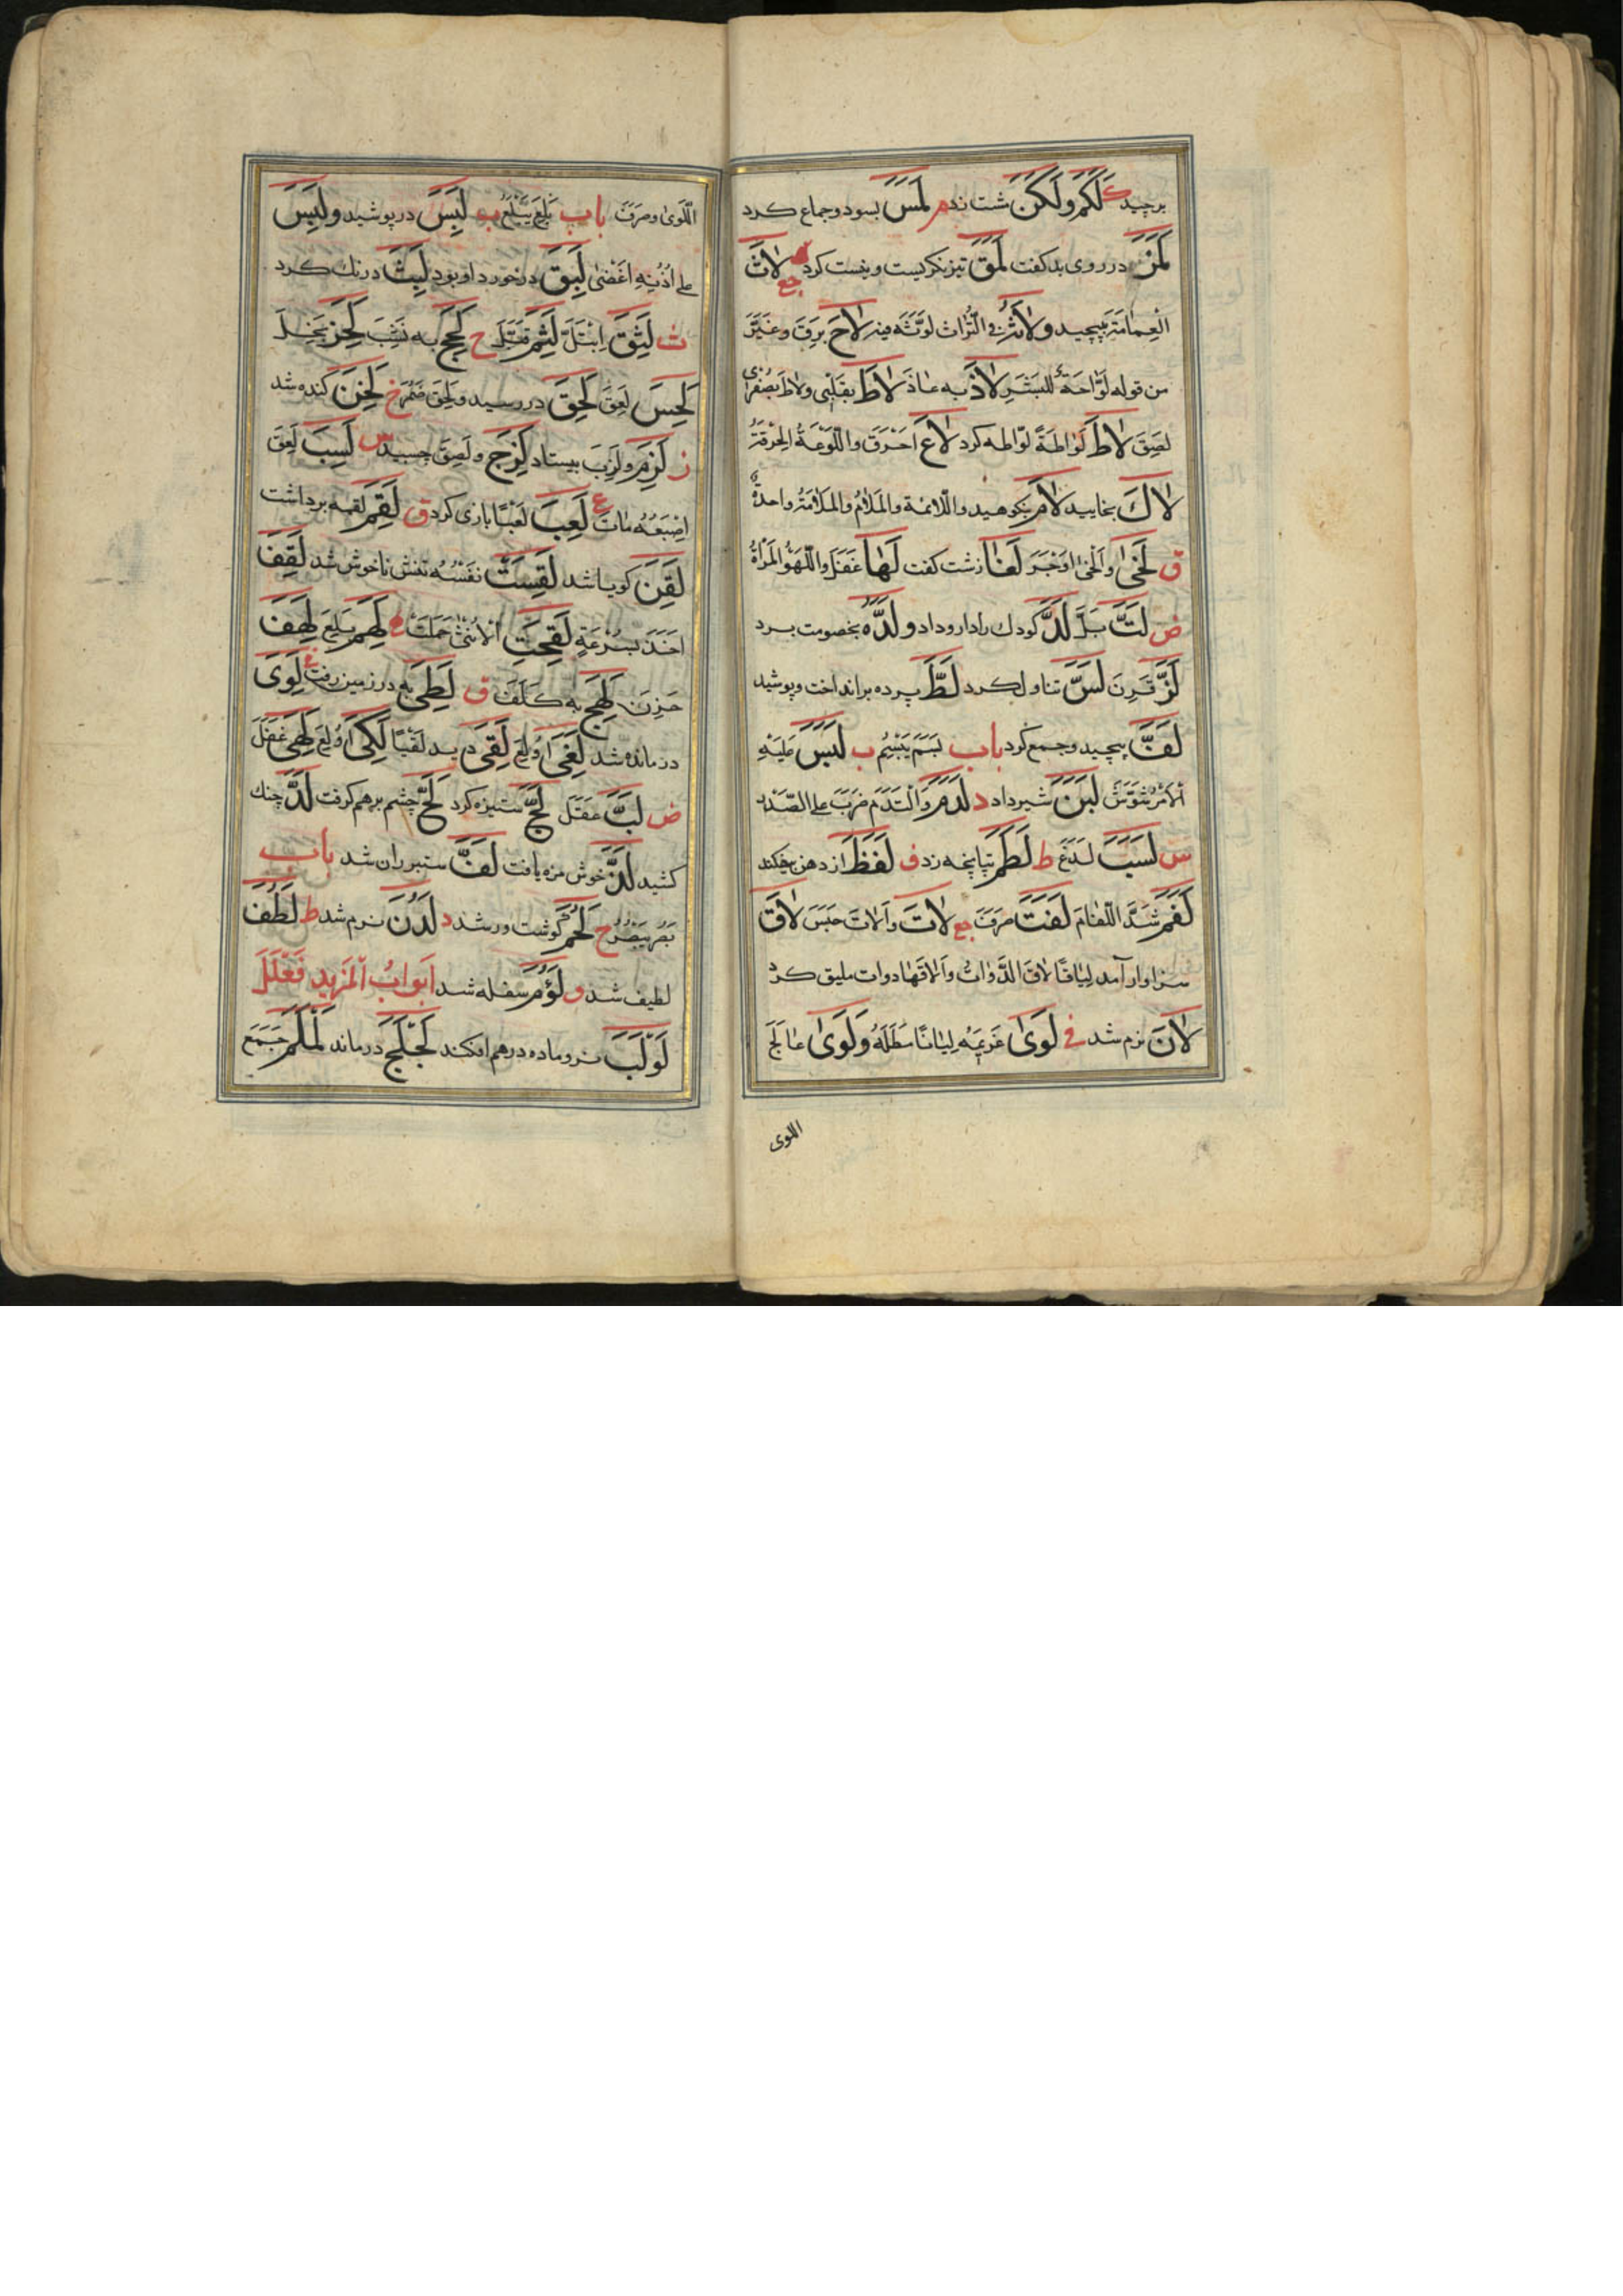 برچید ك لَكَمَ ولَكَنَ مشت زد م لَمَسَ بسود وجماع كرد
لَمَزَ در روی بد كفت لَمَقَ تیز نكریست و بنبشت كرد جع لاثَ
العِمامَةَ بپیچید ولاثَ فی التُّراثِ لَوَّثَه فیه لاحَ بَرِقَ وغَیَّرَ
من قوله لَوّاحَةٌ للبَشَرِ لاذَ به عاذَ لاطَ بقلبی ولاطَ بصُفری
لصِقَ لاطَ لِواطةً لواطه كرد لاعَ احرَقَ واللَّوعَةُ الحُرقَةُ
لاكَ بخایید لامَ بنكوهید واللائمة والمَلامُ والمَلامَةُ واحدة
ق لَخیٰ وألخیٰ اوجَرَ لَغا زشت كفت لَها غَفَلَ واللَّهوُ المَراةُ
ض لَتَّ بَلَّ لَدَّ كودك را دارو داد ولَدَّه بخصومت برد
لَزَّ قَرِنَ لَسَّ تناول كرد لَطَّ پرده برانداخت وپوشید
لَفَّ پیچید وجمع كرد باب بَسَمَ یَبسِمُ ب لَبَسَ عَلَیهِ
الأمرَ شَوَّشَ لَبَنَ شیر داد د لَدَمَ والتَدَمَ ضَرَبَ علی الصَّدر
س لَسَبَ لَدَغَ ط لَطَمَ تپانچه زد ف لَفَظَ از دهن بیفكند
لَفَمَ شَدَّ اللِّفامَ لَفَتَ صَرَفَ جع لاتَ وألاتَ حَبَسَ لاقَ
سزاوار آمد لِیاقًا لاقَ الدَّواتُ وألاقَها دوات ملیق كرد
لانَ نرم شد فی لَویٰ غَریمَه لِیانًا مَطَلَهُ ولَویٰ عالَجَ
اللوی
اللَّویٰ وصَرَفَ باب بَلِعَ یَبلَعُ ب لَبِسَ در پوشید ولَبِسَ
علی أُذُنِهِ اغضیٰ لَبِقَ در خورد او بود لَبِثَ درنك كرد
ث لَثِقَ ابتَلَّ لَثِمَ قَبَّلَ ح لَحِجَ به نَشِبَ لَحِزَ بَخِلَ
لَحِسَ لَعِقَ لَحِقَ در رسید ولَحِقَ ضَمُرَ خ لَخِنَ كنده شد
ز لَزِمَ ولَزِبَ بیستاد لَزِجَ ولَصِقَ چسبید س لَسِبَ لَعِقَ
اصبَعُه مات ع لَعِبَ لَعِبًا بازی كرد ق لَقِمَ لقمه برداشت
لَقِنَ كویا شد لَقِسَت نفسُه نفسش ناخوش شد لَقِفَ
اخَذَ بسُرعَةٍ لَقِحَتِ الأُنثیٰ حَمَلَت ه لَهِمَ بَلِعَ لَهِفَ
حَزِنَ لَهِجَ به كَلِفَ ق لَطِیَ به در زمین رفت لَوِیَ
درمانده شد لَغِیَ أُولِعَ لَقِیَ دید لَقیًا لَكِیَ أُولِعَ لَهِیَ غَفَلَ
ض لَبَّ عَقَلَ لَجَّ ستیزه كرد لَحَّ چشم برهم كرفت لَدَّ جنك
كشید لَذَّ خوش مزه یافت لَفَّ ستبر ران شد باب
بَصُرَ یَبصُرُ ح لَحُمَ كوشت ور شد د لَدُنَ نرم شد ط لَطُفَ
لطیف شد و لَؤُمَ سفله شد أبوابُ المَزیدِ فَعلَلَ
لَولَبَ نر وماده درهم افكند لَجلَجَ درماند لَملَمَ جَمَعَ